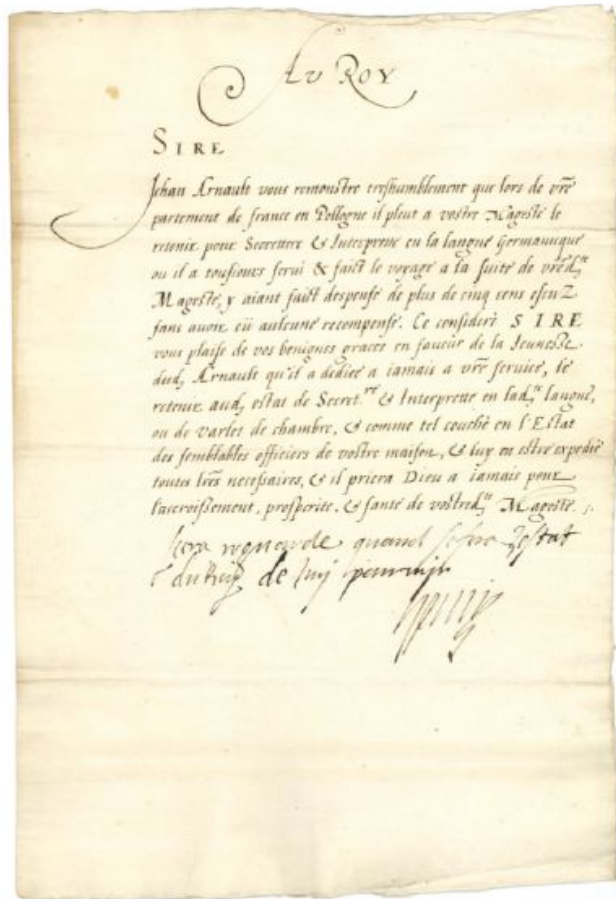 Au Roy
SIRE
Jehan Arnault vous remonstre treshumblement que lors de vr̃e
partement de france en Pollogne il pleut a vostre Magesté le
retenir pour Secretere & Interprete en la langue Germanicque
ou il a tousiours serui & faict le voyage a la suite de vr̃ed.te
Magesté, y aiant faict despense de plus de cinq cens escuz
sans auoir eü aulcune recompense. Ce consideré SIRE
vous plaise de vos benignes graces en faueur de la Jeunesse
dud. Arnault qu'il a dediée a iamais a vr̃e seruice, le
retenir aud. estat de Secret.re & Interprete en lad.te langue,
ou de varlet de chambre, & comme tel couché en l'Estat
des semblables officiers de vostre maison, & luy en estre expedié
toutes lr̃es necessaires, & il priera Dieu a iamais pour
l'accroissement, prosperité, & santé de vostred.te Magesté.
quand lestat
de luy